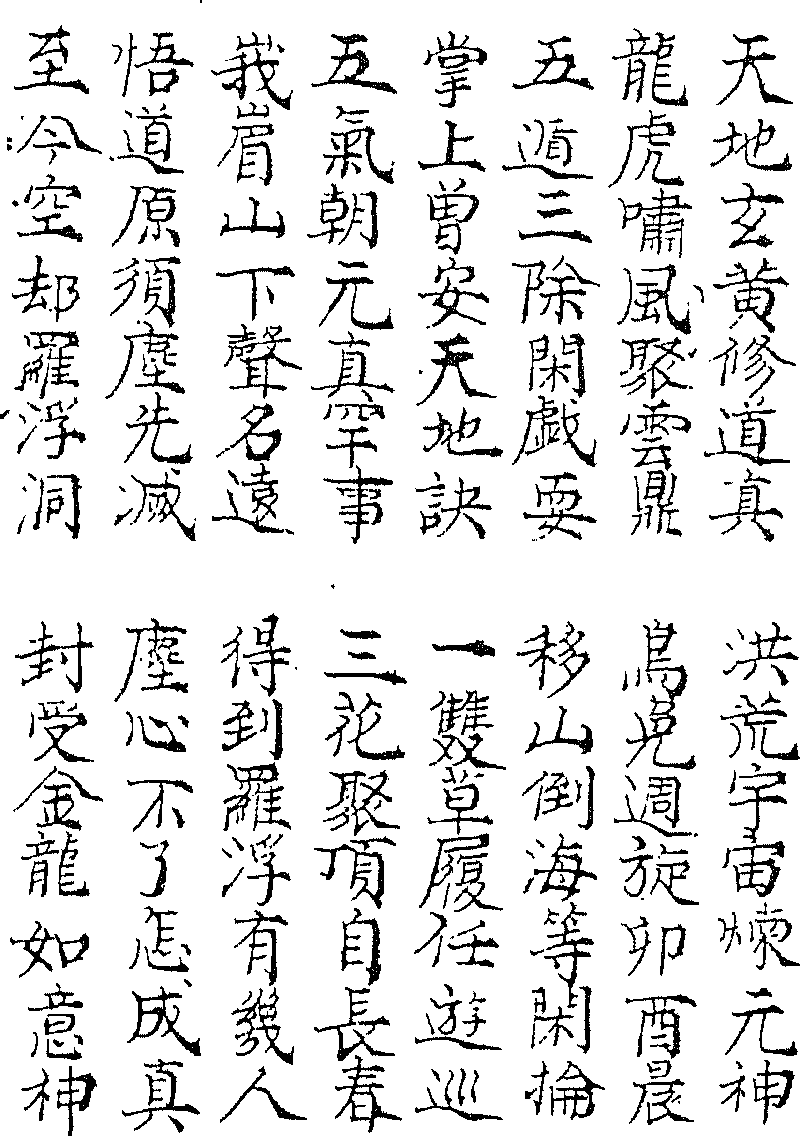 天地玄黄修道真 洪荒宇宙煉元神
龍虎嘯風聚雲鼎 烏兔週旋卯酉晨
五遁三除閑戯耍 移山倒海等閑掄
掌上曾安天地訣 一雙草履任遊巡
五氣朝元真罕事 三花聚頂自長春
峩眉山下聲名遠 得到羅浮有幾人
悟道原須塵先滅 塵心不了怎成真
至今空却羅浮洞 封受金龍如意神